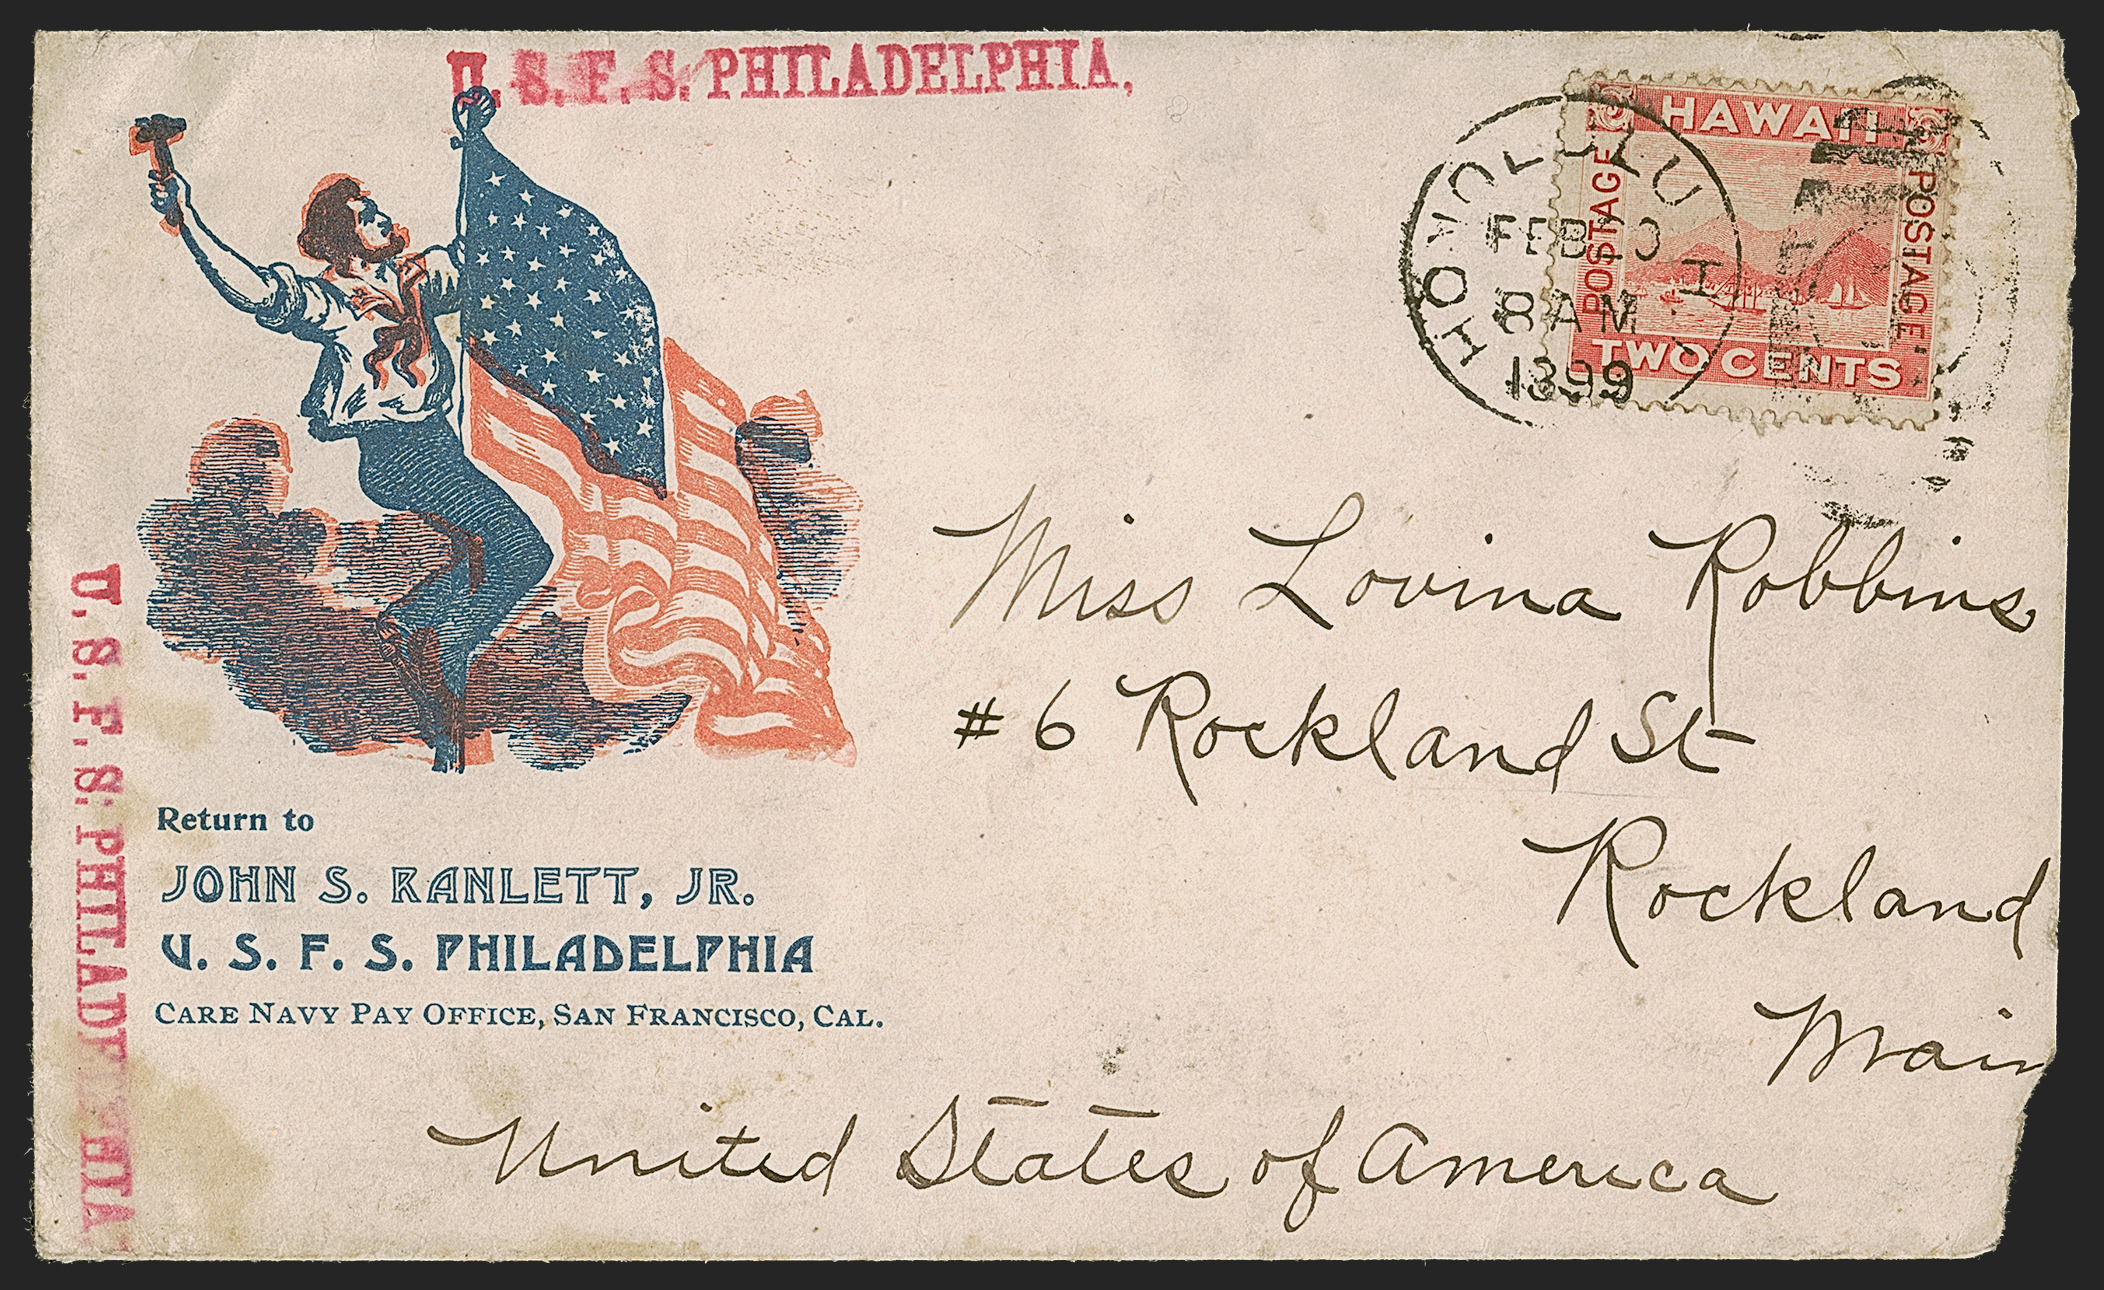 U. S. F. S. PHILADELPHIA,
HAWAII
POSTAGE
POSTAGE
TWO CENTS
HONOLULU
H I
FEB 20
8 AM
1899
U. S. F. S. PHILADELPHIA
Miss Lovina Robbins
# 6 Rockland St
Rockland
Main
United States of America
Return to
JOHN S. RANLETT, JR.
U. S. F. S. PHILADELPHIA
CARE NAVY PAY OFFICE, SAN FRANCISCO, CAL.